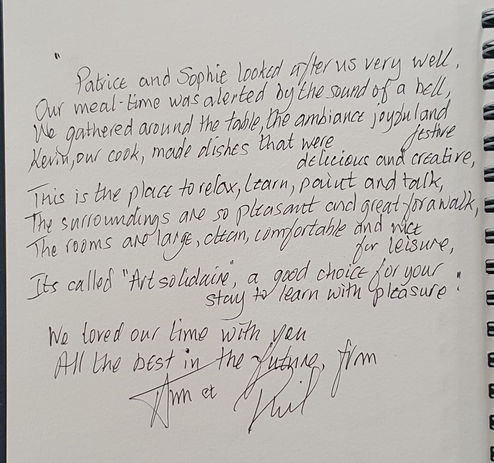 "
Patrice and Sophie looked after us very well,
Our meal-time was alerted by the sound of a bell,
We gathered around the table, the ambiance joyful and
festive
Kevin, our cook, made dishes that were
delicious and creative,
This is the place to relax, learn, paint and talk,
The surroundings are so pleasant and great for a walk,
The rooms are large, clean, comfortable and nice
for leisure,
Its called "Art solidaire", a good choice for your
stay to learn with pleasure."
We loved our time with you
All the best in the future, from
Ann et Phil